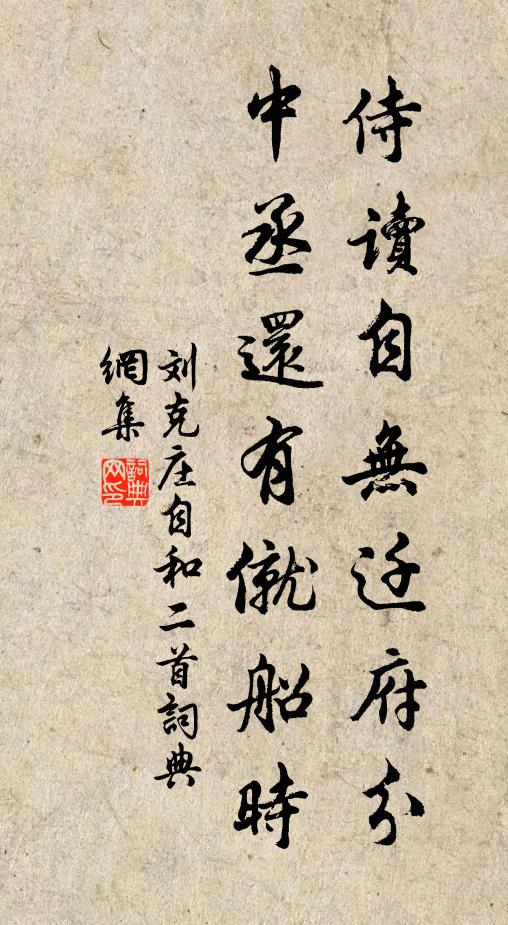 侍讀自無迁府分
中丞還有僦船時
刘克庄自和二首詞典
網集
詞典
网印